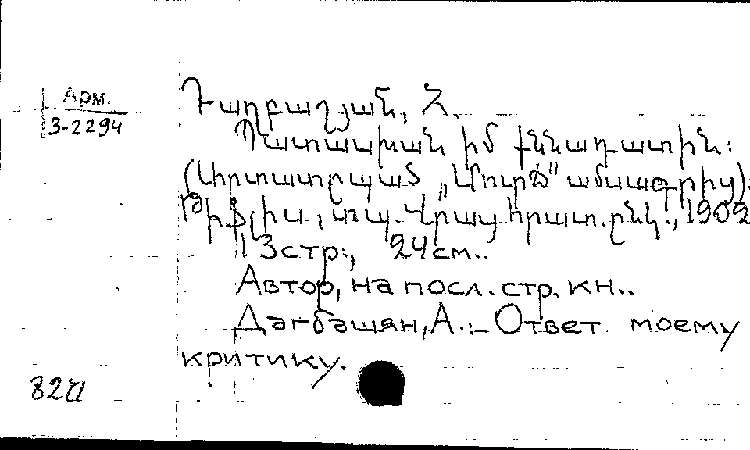 Арм.
3-2294
Դաղբաշյան, Հ.
Պատասխան իմ քննադատին:
(Արտատպված „Մուրճ" ամսագրից):
Թիֆլիս, տպ. Վրաց հրատ. ընկ., 1902
13 стр., 24 см..
Автор, на посл. стр. кн..
Дагбашян, А. - Ответ моему
критику.